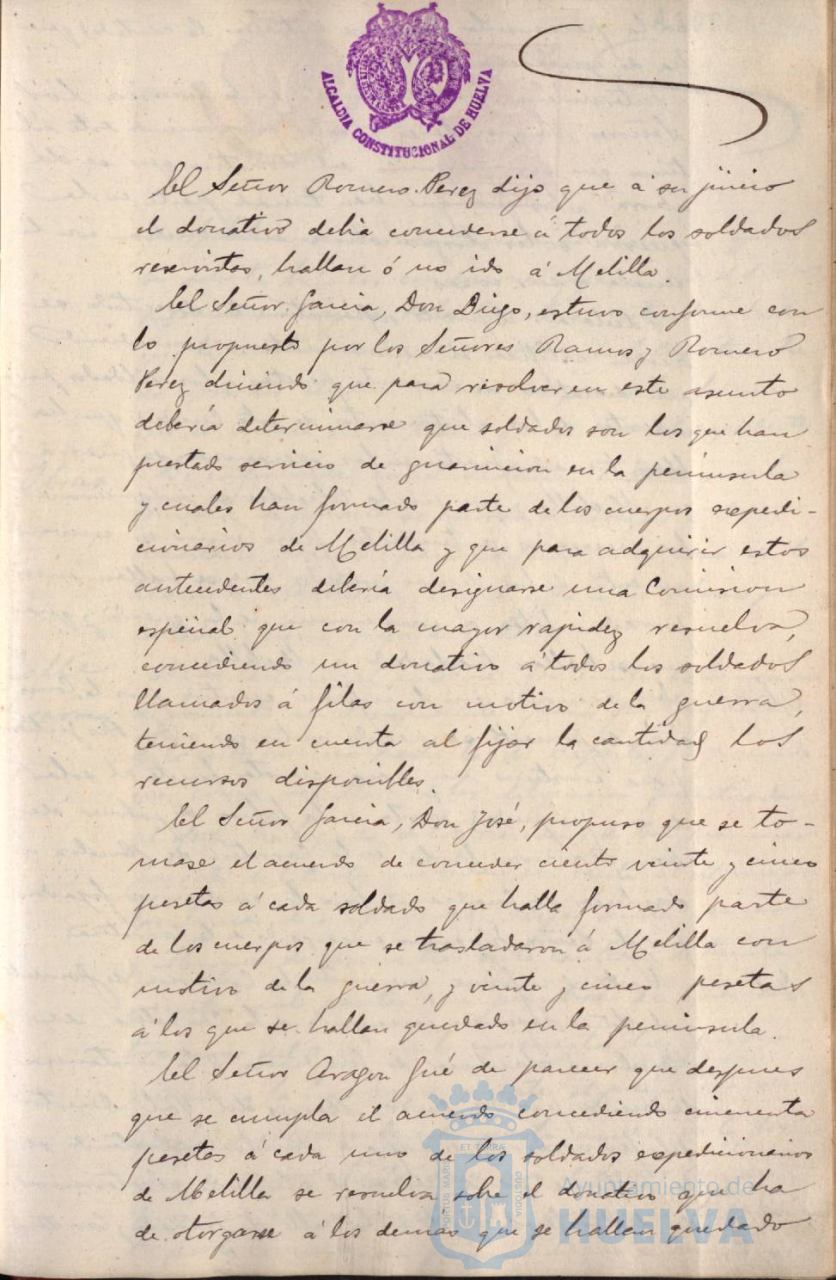 ALCALDIA CONSTITUCIONAL DE HUELVA
El Señor Romero Perez dijo que á su juicio
el donativo debia concederse á todos los soldados
reservistas, hallan ó no ido á Melilla.
El Señor Garcia, Don Diego, estuvo conforme con
lo propuesto por los Señores Ramos y Romero
Perez diciendo que para resolver en este asunto
debería determinarse que soldados son los que han
prestado servicio de guarnicion en la península
y cuales han formado parte de los cuerpos expedi-
cionarios de Melilla y que para adquirir estos
antecedentes debería designarse una Comision
especial que con la mayor rapidez resuelva,
concediendo un donativo á todos los soldados
llamados á filas con motivo de la guerra,
teniendo en cuenta al fijar la cantidad los
recursos disponibles.
El Señor Garcia, Don José, propuso que se to-
mase el acuerdo de conceder ciento veinte y cinco
pesetas á cada soldado que halla formado parte
de los cuerpos que se trasladaron á Melilla con
motivo de la guerra, y veinte y cinco pesetas
á los que se hallan quedado en la peninsula.
El Señor Aragon fué de parecer que despues
que se cumpla el acuerdo concediendo cincuenta
pesetas á cada uno de los soldados expedicionarios
de Melilla se resuelva sobre el donativo que ha
de otorgarse á los demas que se hallan quedado
Ayuntamiento de
HUELVA